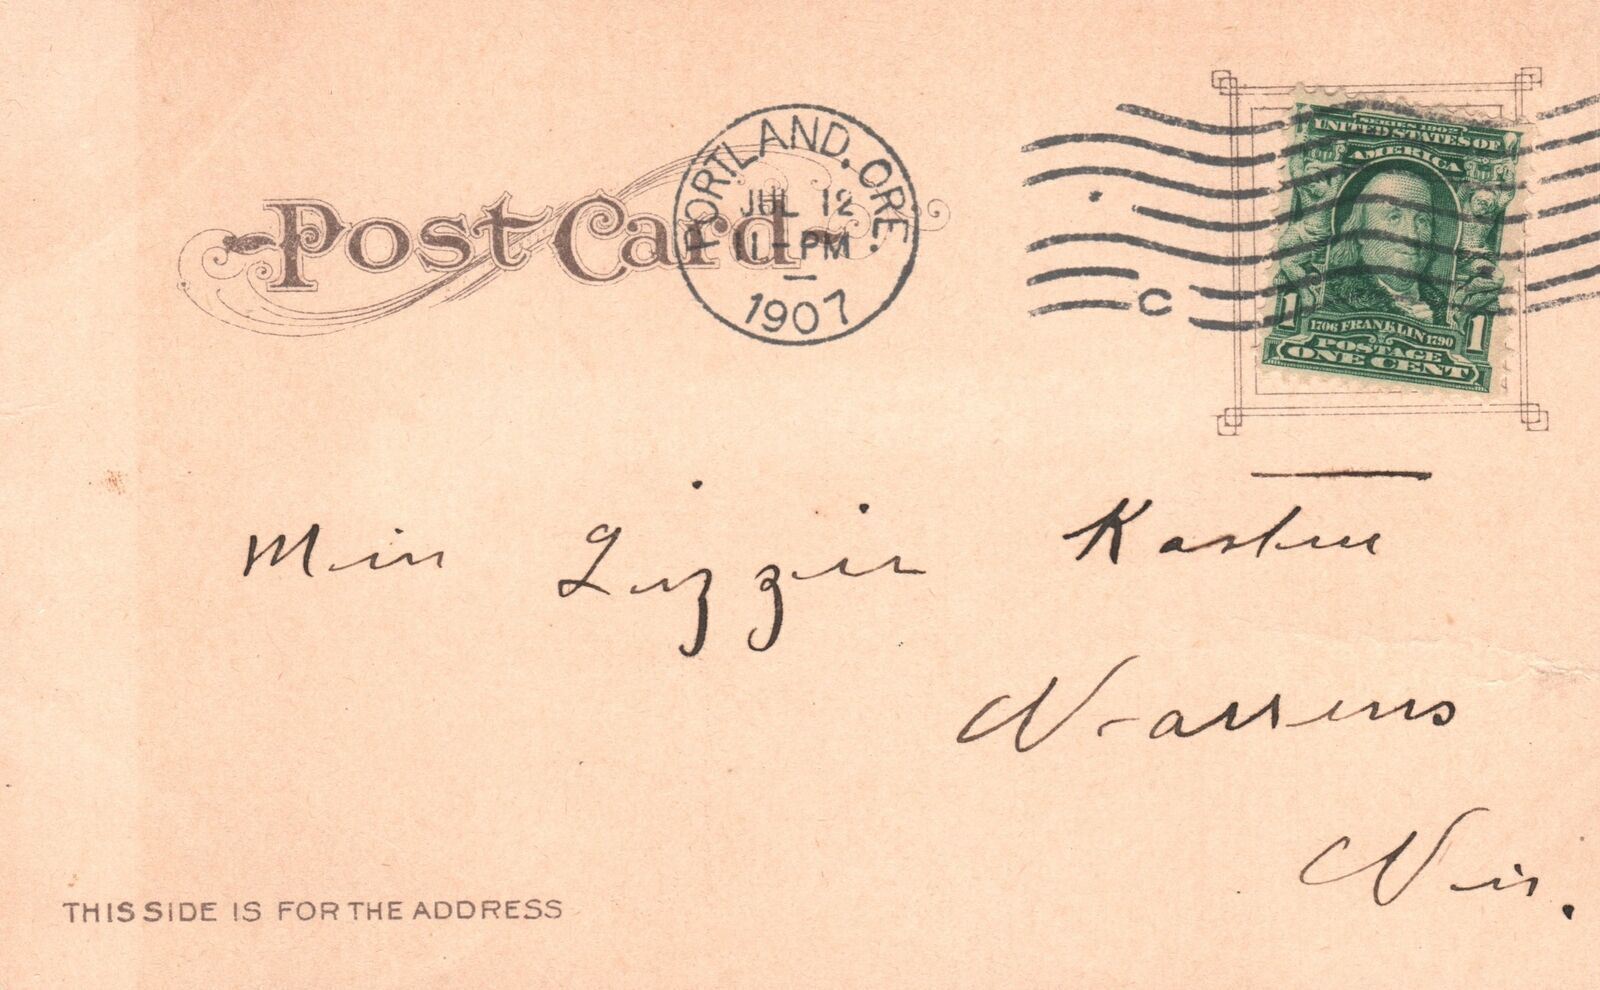 Post Card
PORTLAND, ORE.
JUL 12
11-PM
1907
C
SERIES 1902
UNITED STATES OF
AMERICA
1706 FRANKLIN 1790
1 1
POSTAGE
ONE CENT
Miss Lizzie
Warrens
Wis.
THIS SIDE IS FOR THE ADDRESS